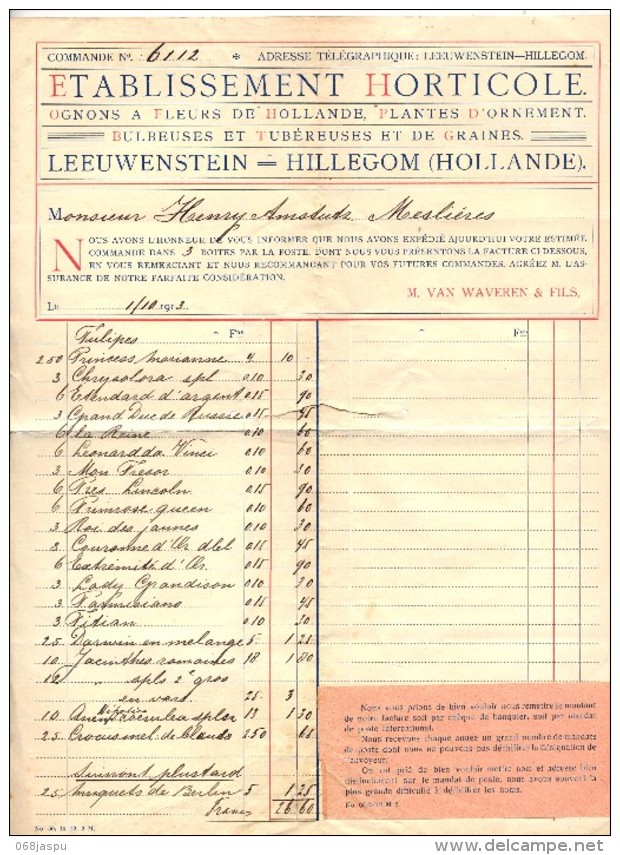 COMMANDE No. 6112 * ADRESSE TÉLÉGRAPHIQUE: LEEUWENSTEIN—HILLEGOM.
ETABLISSEMENT HORTICOLE.
OGNONS A FLEURS DE HOLLANDE, PLANTES D'ORNEMENT.
BULBEUSES ET TUBÉREUSES ET DE GRAINES.
LEEUWENSTEIN = HILLEGOM (HOLLANDE).
Monsieur Henry Amstutz Meslières
NOUS AVONS L'HONNEUR DE VOUS INFORMER QUE NOUS AVONS EXPÉDIÉ AUJOURD'HUI VOTRE ESTIMÉE
COMMANDE DANS 3 BOITES PAR LA POSTE, DONT NOUS VOUS PRÉSENTONS LA FACTURE CI DESSOUS,
EN VOUS REMERCIANT ET NOUS RECOMMANDANT POUR VOS FUTURES COMMANDES, AGRÉEZ M. L'AS-
SURANCE DE NOTRE PARFAITE CONSIDÉRATION.
M. VAN WAVEREN & FILS,
LE 1/10 1913.
Tulipes
250 Princess Marianne 4 10 -
3 Chrysolora spl 0.10 30
6 Etendard d'argent 0.15 90
3 Grand Duc de Russie 0.15 45
6 la Reine 0.10 60
6 Leonard da Vinci 0.10 60
3 Mon Tresor 0.10 30
6 Pres Lincoln 0.15 90
6 Primrose queen 0.10 60
3 Roi des jaunes 0.10 30
3 Couronne d'Or dbl 0.15 45
6 Extremité d'Or 0.15 90
3 Lady Grandison 0.10 30
3 Parmisiano 0.15 45
3 Titian 0.10 30
25 Darwin en melange 5 1.25
10 Jacinthes romaines 18 1.80
12 " spls 2e gros
en vars 25 3
10 Anem coerulea splor 13 1.30
25 Crocus mel de blauds 2.50 65
Suivront plus tard
25 Muguets de Berlin 5 1.25
Francs 26.60
Nous vous prions de bien vouloir nous remettre le montant
de notre facture soit par chèque de banquier, soit par mandat
de poste international.
Nous recevons chaque année un grand nombre de mandats
de poste dont nous ne pouvons pas déchiffrer la désignation de
l'envoyeur.
On est prié de bien vouloir mettre nom et adresse bien
distinctement sur le mandat de poste, nous avons souvent la
plus grande difficulté à déchiffrer les noms.
068jaspu
delcampe.net